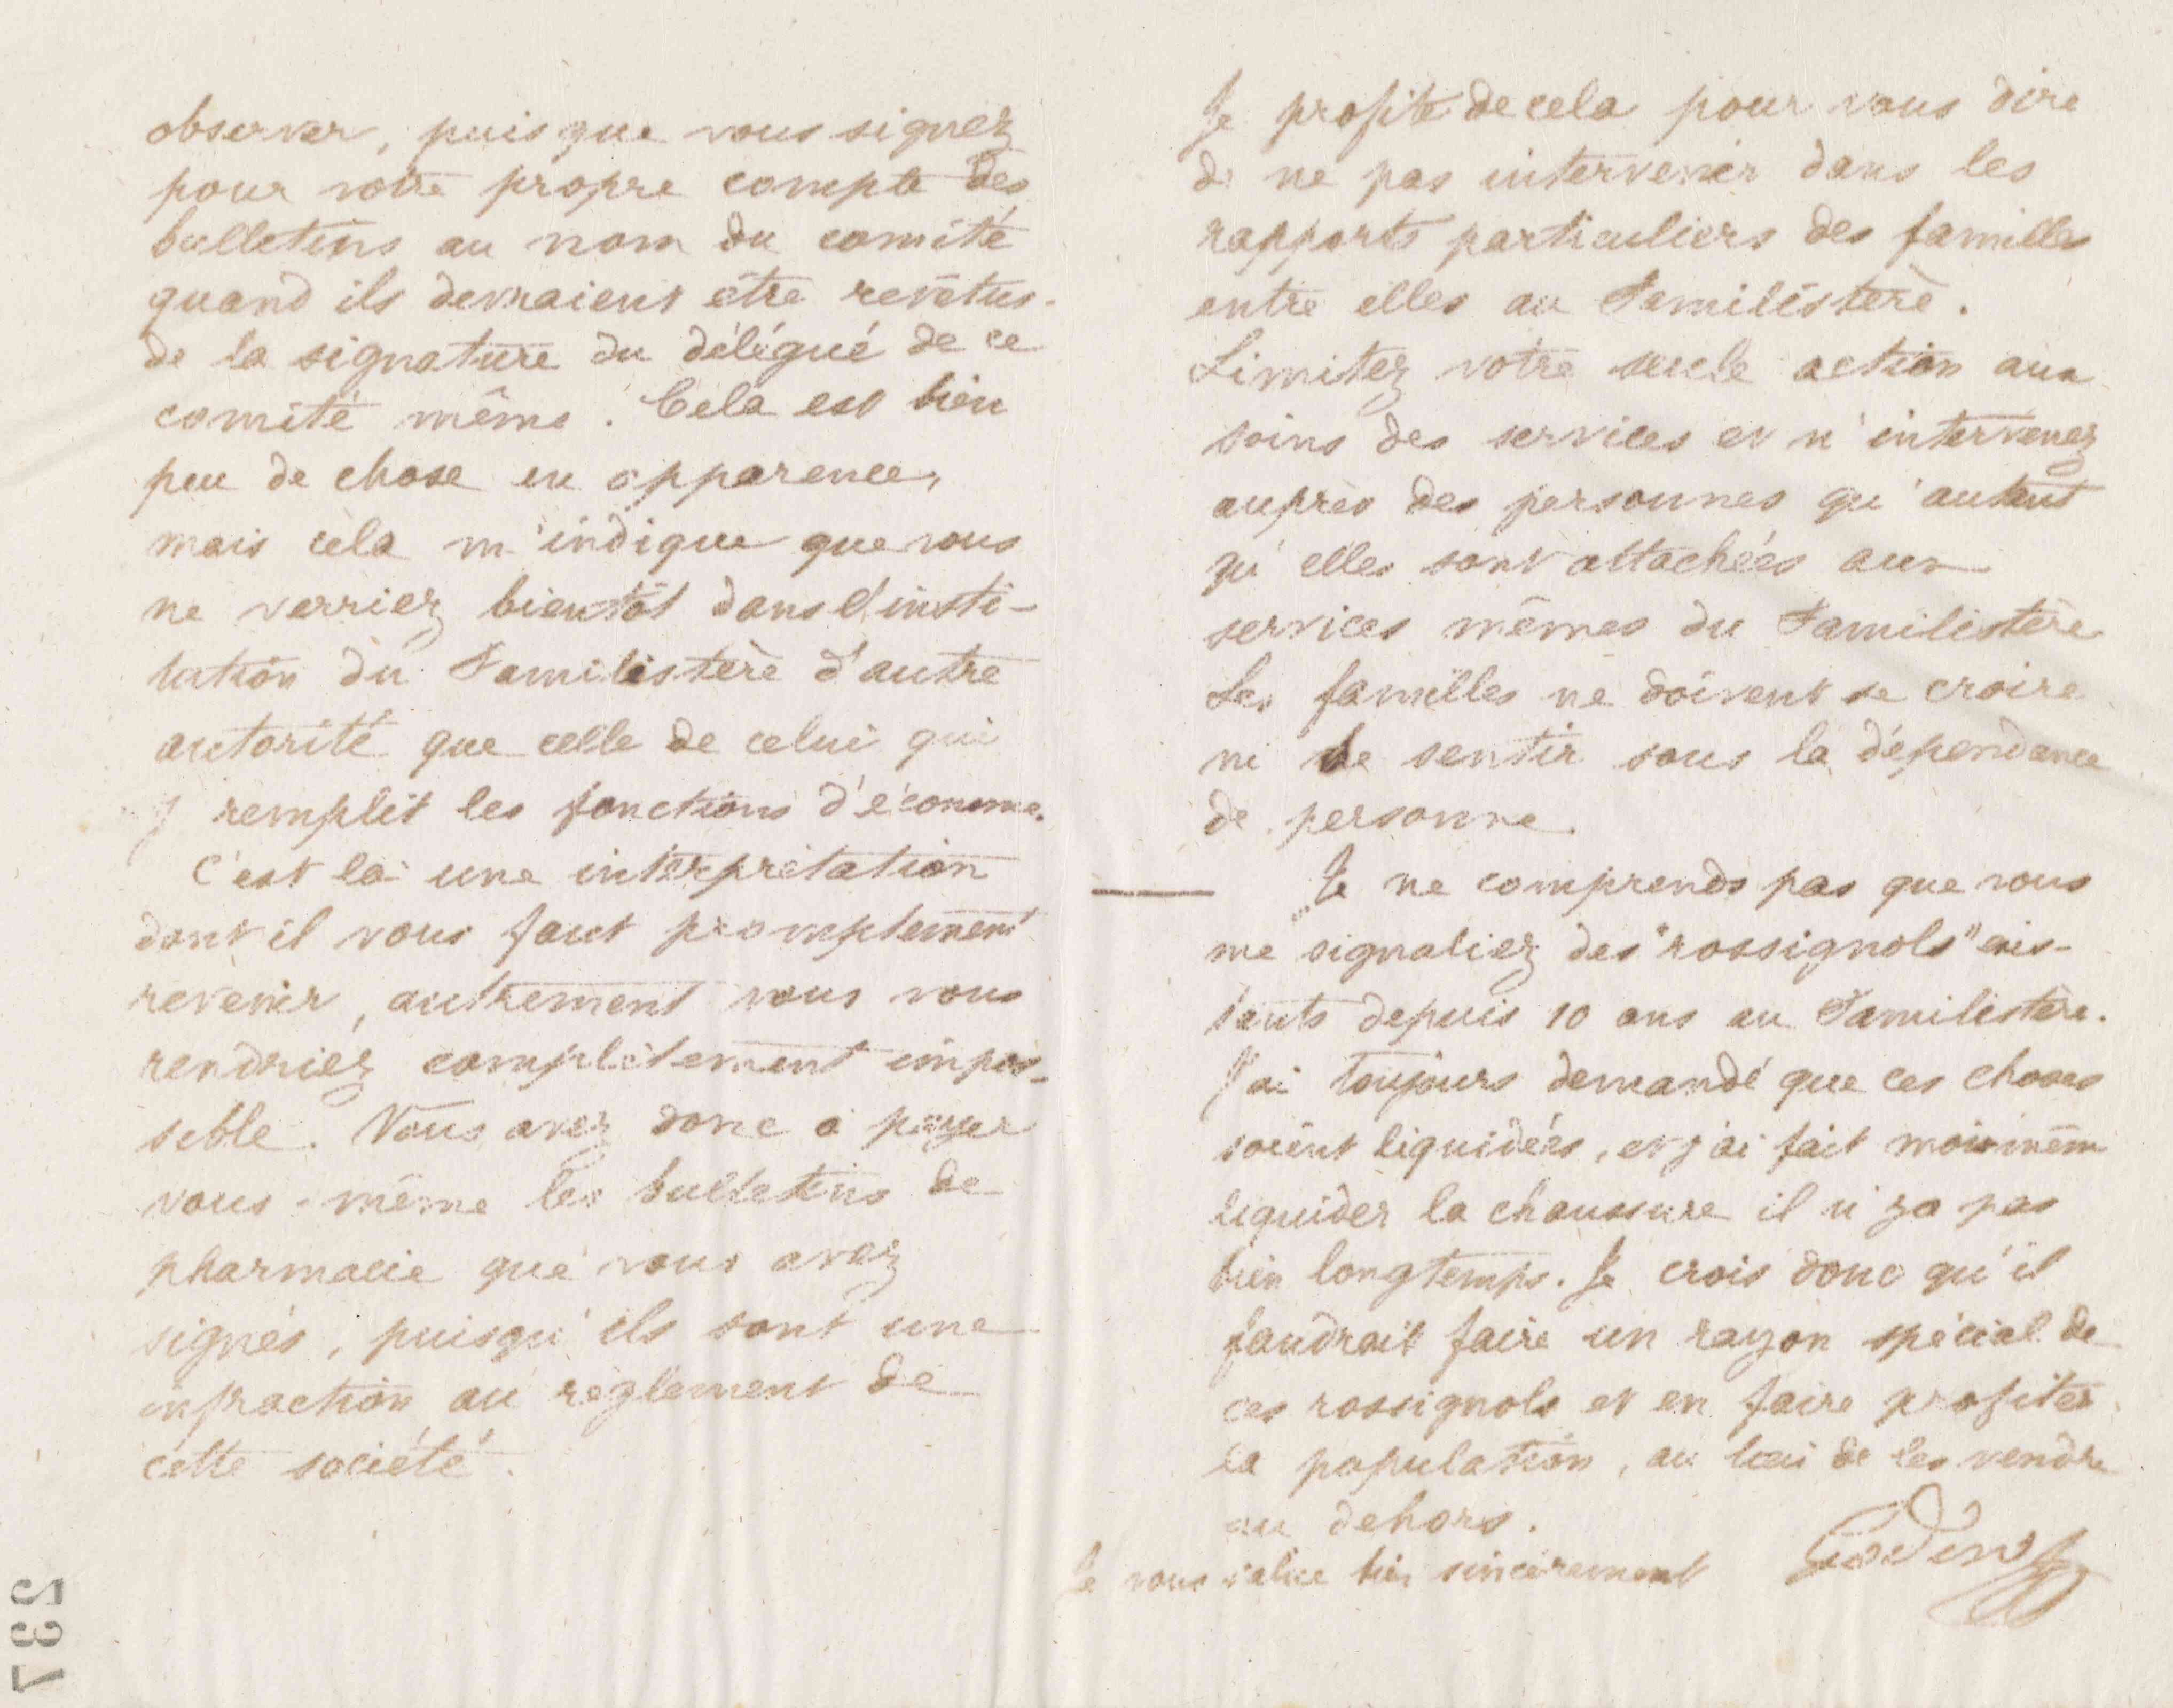 observer, puisque vous signez
pour votre propre compte des
bulletins au nom du comité
quand ils devraient être revêtus
de la signature du délégué de ce
comité même. Cela est bien
peu de chose en apparence,
mais cela m'indique que vous
ne verriez bientôt dans l'insti-
tution du Familistère d'autre
autorité que celle de celui qui
y remplit les fonctions d'économe.
C'est là une interprétation
dont il vous faut promptement
revenir, autrement vous vous
rendriez complètement impos-
sible. Vous avez donc à payer
vous-même les bulletins de
pharmacie que vous avez
signés, puisqu'ils sont une
infraction au règlement de
cette société.
Je profite de cela pour vous dire
de ne pas intervenir dans les
rapports particuliers des familles
entre elles au Familistère.
Limitez votre seule action aux
soins des services et n'intervenez
auprès des personnes qu'autant
qu'elles sont attachées aux
services mêmes du Familistère
Les familles ne doivent se croire
ni se sentir sous la dépendance
de personne.
Je ne comprends pas que vous
me signaliez des "rossignols" exis-
tants depuis 10 ans au Familistère.
J'ai toujours demandé que ces choses
soient liquidées, et j'ai fait moi-même
liquider la chaussure il n'y a pas
bien longtemps. Je crois donc qu'il
faudrait faire un rayon spécial de
ces rossignols et en faire profiter
la population, au lieu de les vendre
au dehors.
Je vous salue bien sincèrement
Godin
237